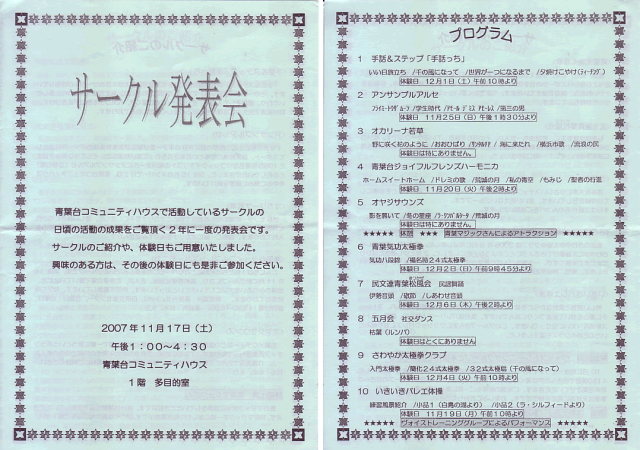 サークル発表会
青葉台コミュニティハウスで活動しているサークルの
日頃の活動の成果をご覧頂く２年に一度の発表会です。
サークルのご紹介や、体験日もご用意いたしました。
興味のある方は、その後の体験日にも是非ご参加ください。
２００７年１１月１７日（土）
午後１：００〜４：３０
青葉台コミュニティハウス
１階　多目的室
プログラム
１　手話＆ステップ「手話っち」
いい日旅立ち　/千の風になって　/世界が一つになるまで　/夕焼けこやけ
体験日　１２月１日（土）午前１０時より
２　アンサンブルアルセ
/学生時代　/第三の男
体験日　１１月２５日（日）午後１時３０分より
３　オカリーナ若草
野に咲く花のように　/おおひばり　/海に来たれ　/横浜市歌　/流浪の民
体験日は特にありません。
４　青葉台ジョイフルフレンズハーモニカ
ホームスイートホーム　/ドレミの歌　/荒城の月　/私の青空　/もみじ　/聖者の行進
体験日　１１月２０日（火）午後２時より
５　オヤジサウンズ
影を慕いて　/冬の星座　/荒城の月
体験日は特にありません。
★★★★★　休憩　★★★　青葉マジックさんによるアトラクション　★★★★★
６　青葉気功太極拳
気功八段錦　/楊名時２４式太極拳
体験日　１２月２日（日）午前９時４５分より
７　民文連青葉松風会　民謡舞踊
伊勢音頭　/しあわせ音頭
体験日　１２月６日（木）午後２時より
８　五月会　社交ダンス
枯葉（ルンバ）
体験日はとくにありません
９　さわやか太極拳クラブ
入門太極拳　/簡化２４式太極拳　/３２式太極扇（千の風になって）
体験日　１２月４日（火）午前１０時より
１０　いきいきバレエ体操
練習風景紹介　/小品１（白鳥の湖より）　/小品２（ラ・シルフィードより）
体験日　１１月１９日（月）午前１０時より
★★★★★　ヴォイストレーニンググループによるパフォーマンス　★★★★★